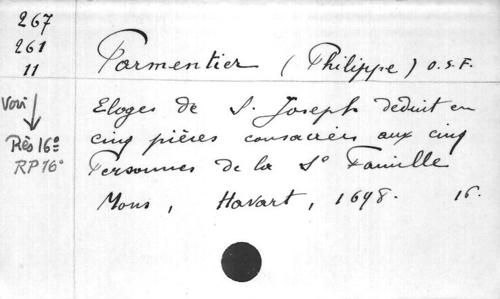 267
261
11
Parmentier (Philippe) O.S.F.
Voir
Rés 16°
RP 16°
Eloges de S. Joseph deduit en
cinq pièces consacrées aux cinq
Personnes de la Ste Famille
Mons, Havart, 1698. 16.